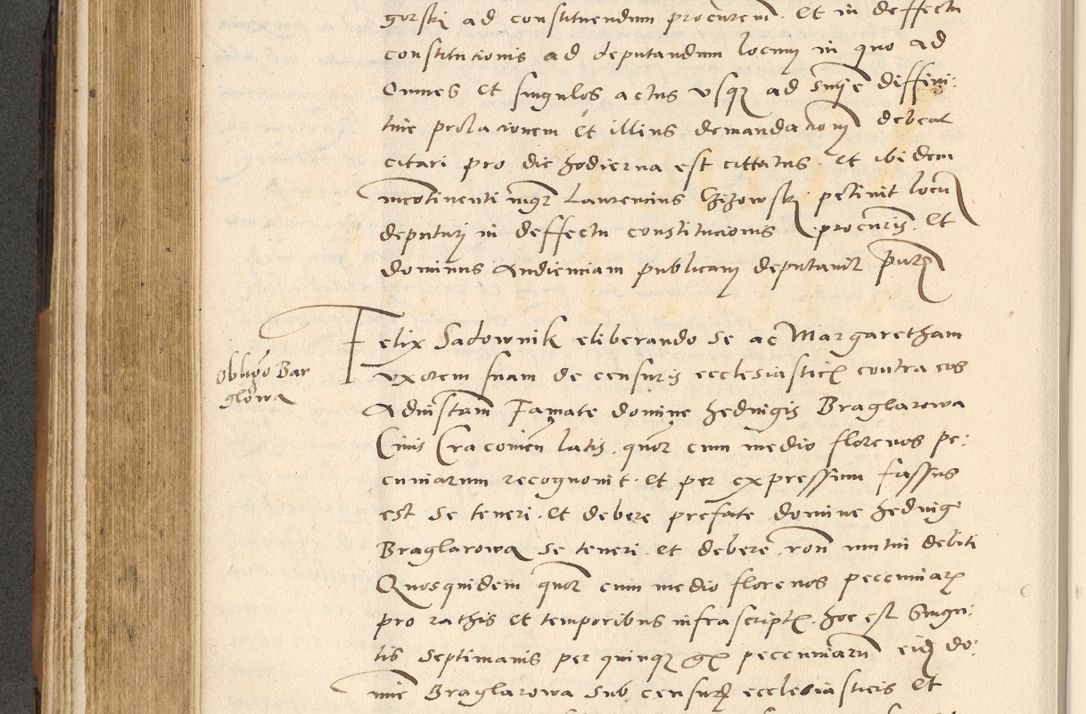 gorskj ad constituendum procurem. Et in deffectu
constitutionis ad deputandum locum in quo ad
Omnes et singulos actus usq ad snie diffini:
tiue prolacionem et illius demandacionem debeat
citari pro die hodierna est cittatus. Et ibidem
incotinenti mgr Laurencius petiuit locu
deputari in deffectu constitucionis procuris. Et
dominus Audienciam publicam deputauit
Felix Sadownik eliberando se ac Margaretham
obligo Bar
glowa
vxorem suam de censuris ecclesiastic contra eos
Ad instam Famate domine heduigis Braglarowa
Ciuis Cracouien latis. quor cum medio florenos pe:
cuniarum recognouit. Et per expressum fassus
est se teneri. Et debere prefate domine heduigi
Braglarowa se teneri. et debere. ron mutui debiti
Quosquidem quor cum medio florenos pecuniar
pro rathis et temporibus infrascript. hoc est Singu:
lis septimanis per quinq gr pecuniarum eid do:
mie Braglarowa sub censur ecclesiasticis Et